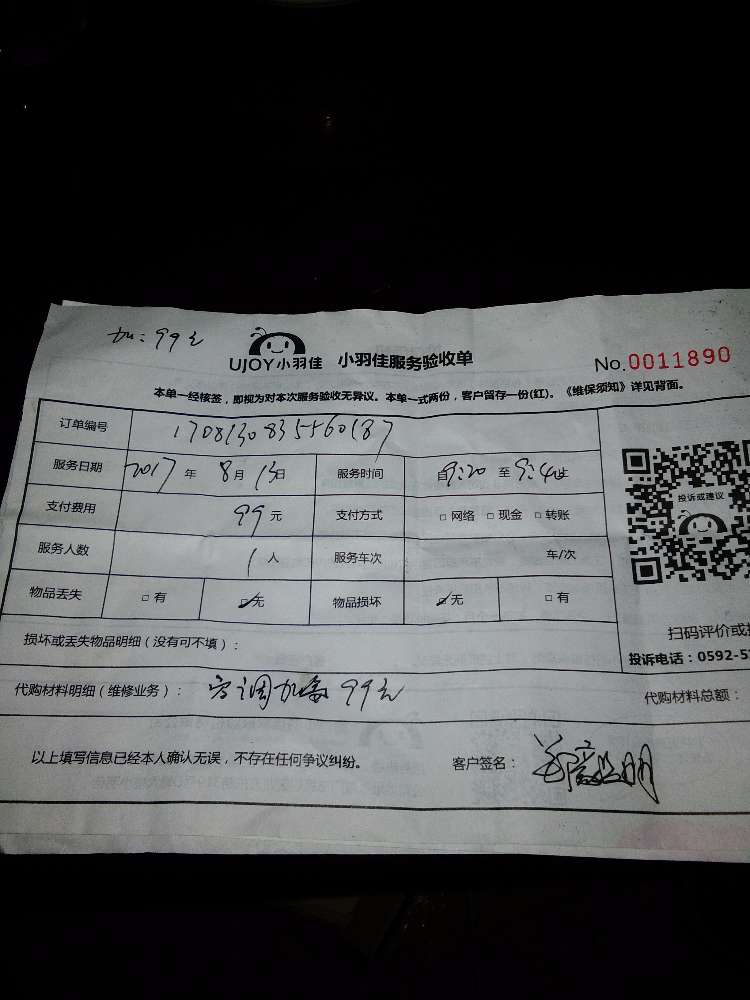 加：99元
UJOY小羽佳 小羽佳服务验收单 No.0011890
本单一经核签，即视为对本次服务验收无异议。本单一式两份，客户留存一份(红)。《维保须知》详见背面。
订单编号 17081308355560187
服务日期 2017年8月13日 服务时间 自9:20至9:4
支付费用 99元 支付方式 □网络 □现金 □转账
投诉或建议
服务人数 1人 服务车次 车/次
物品丢失 □有 ☑无 物品损坏 ☑无 □有
扫码评价或
损坏或丢失物品明细（没有可不填）：
投诉电话：0592-5
代购材料明细（维修业务）： 空调加氟 99元 代购材料总额：
以上填写信息已经本人确认无误，不存在任何争议纠纷。 客户签名：